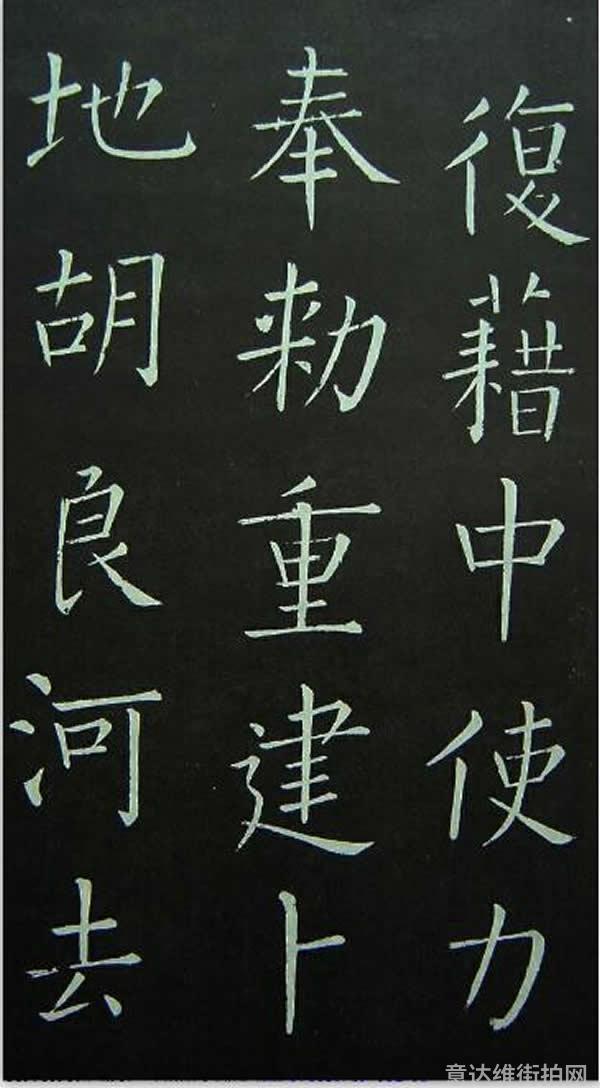 復藉中使力
奉勑重建卜
地胡良河去
意达维街拍网